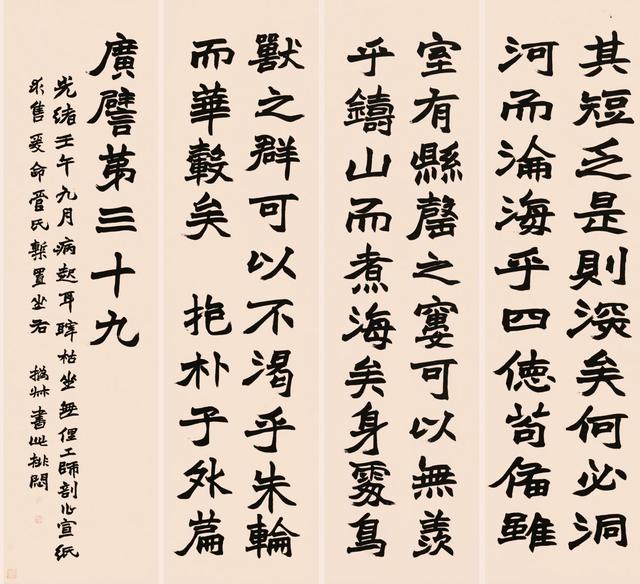 其短乏是則淡矣何必洞
河而淪海乎四徳苟俻雖
室有縣罄之窶可以無羨
乎鑄山而煮海矣身處鳥
獸之群可以不渴乎朱輪
而華轂矣 抱朴子外篇
廣譬第三十九
光緒壬午九月病起耳聹枯坐無俚工師剖心宣紙
求售爰命管氏暫置坐右 撝叔書此排悶